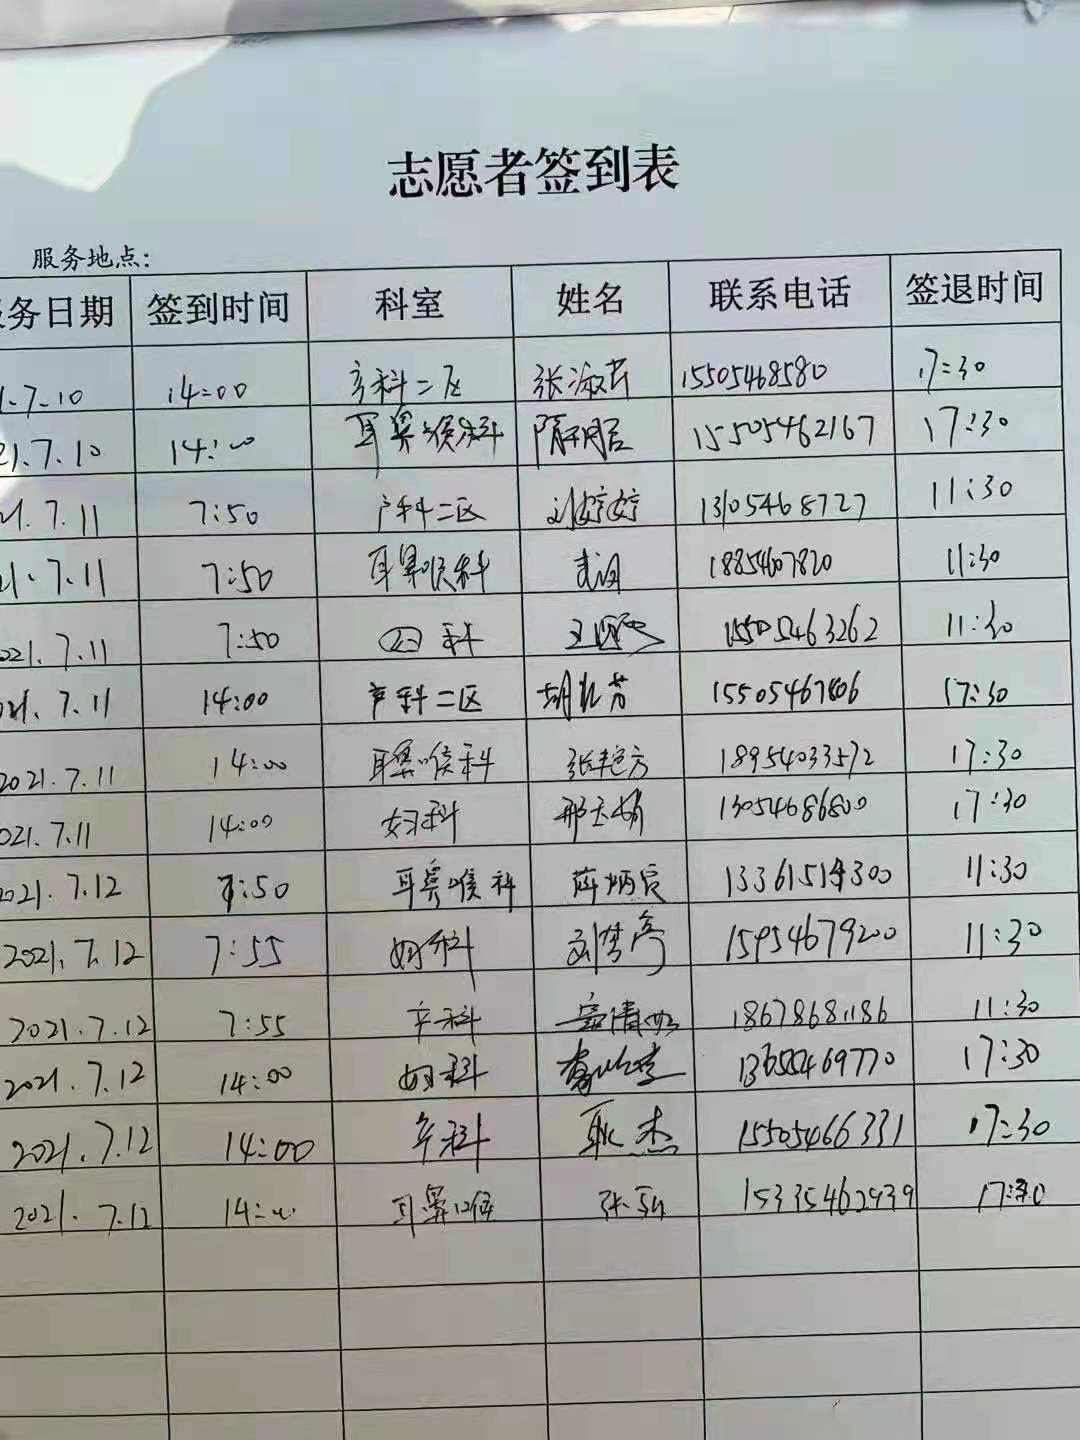 志愿者签到表
服务地点:
务日期 签到时间 科室 姓名 联系电话 签退时间
1.7.10 14:00 产科二区 张淑芹 15505468580 17:30
21.7.10 14:00 耳鼻喉科 15505462167 17:30
21.7.11 7:50 产科二区 刘婷婷 13105468727 11:30
21.7.11 7:50 耳鼻喉科 18854607820 11:30
2021.7.11 7:50 科 15505463262 11:30
021.7.11 14:00 产科二区 胡 芳 17:30
2021.7.11 14:00 耳鼻喉科 张艳方 18954033572 17:30
021.7.11 14:00 妇科 邢 娟 13054686800 17:30
2021.7.12 7:50 耳鼻喉科 薛炳辰 11:30
2021.7.12 7:55 妇科 刘梦 15954679200 11:30
2021.7.12 7:55 产科 18678681186 11:30
2021.7.12 14:00 妇科 17:30
2021.7.12 14:00 产科 耿杰 15505466331 17:30
2021.7.12 14:00 耳鼻喉 张 17:30